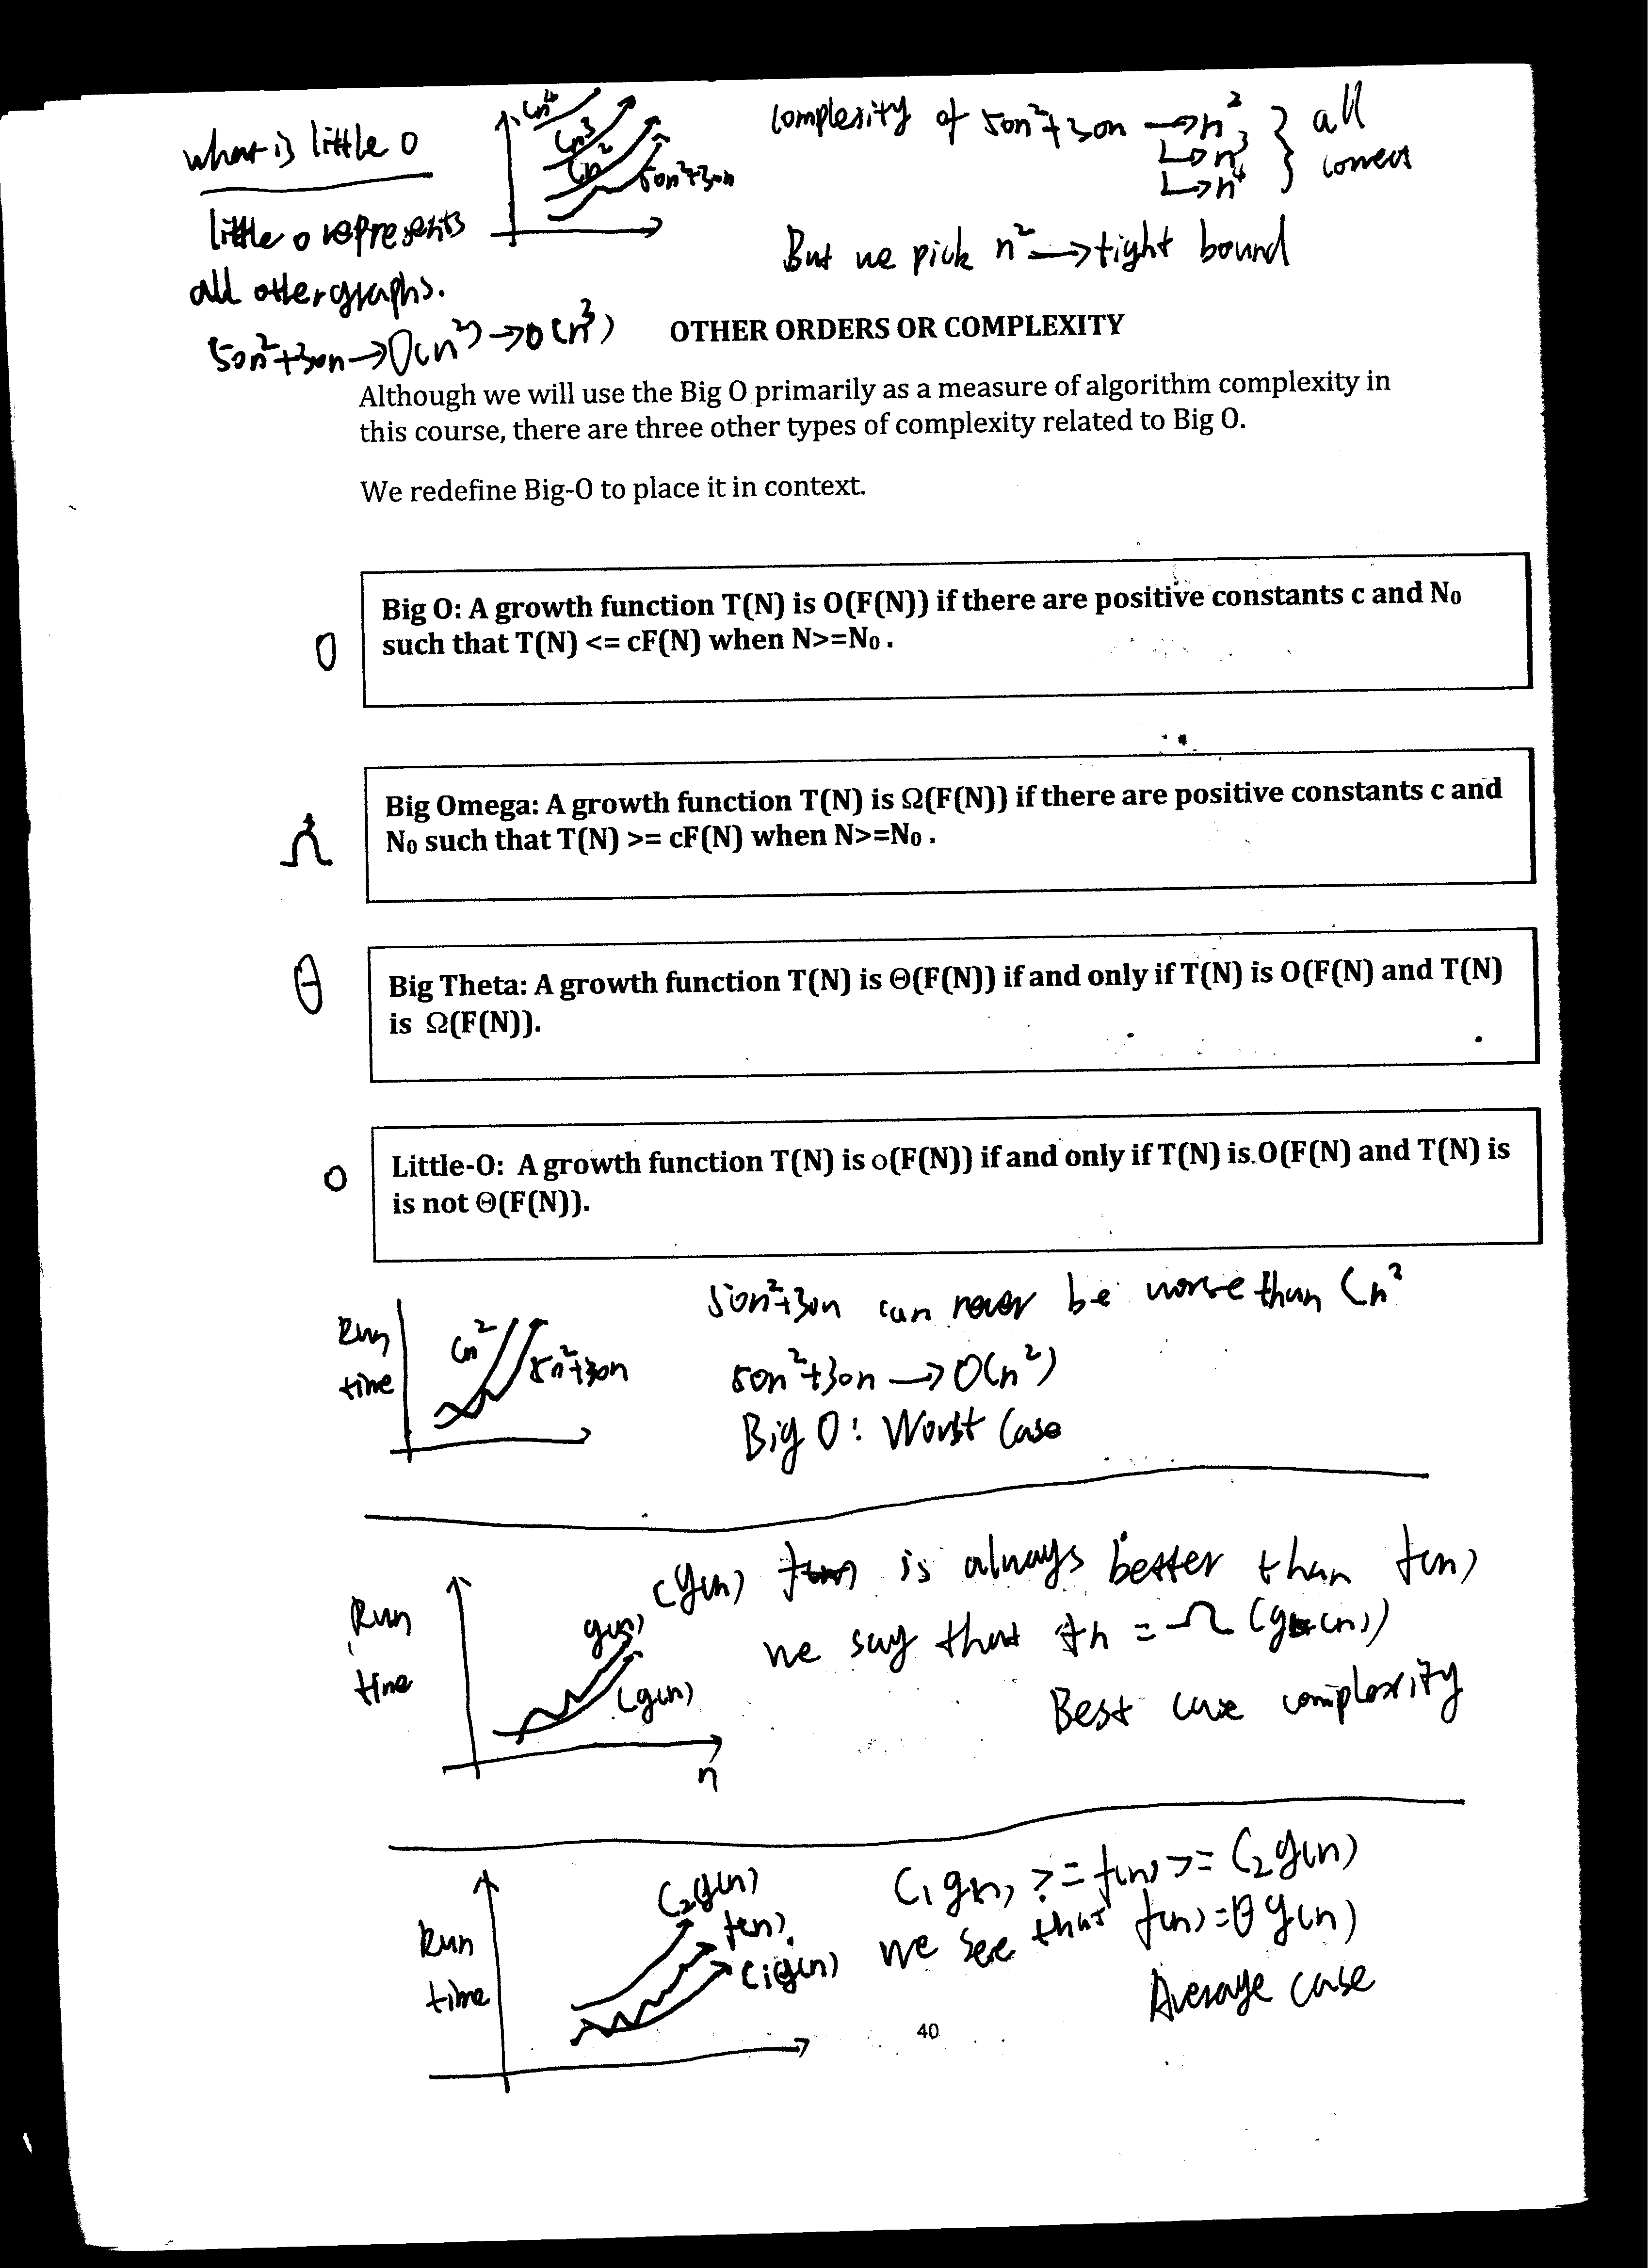 what is little o
little o represents
all other graphs.
50n²+30n → O(n²) → o(n³)
Cn⁴
Cn³
Cn²
50n²+30n
complexity of 50n²+30n → n²
↳ n³
↳ n⁴
} all
correct
But we pick n² → tight bound
OTHER ORDERS OR COMPLEXITY
Although we will use the Big O primarily as a measure of algorithm complexity in
this course, there are three other types of complexity related to Big O.
We redefine Big-O to place it in context.
O
Big O: A growth function T(N) is O(F(N)) if there are positive constants c and N₀
such that T(N) <= cF(N) when N>=N₀ .
Ω
Big Omega: A growth function T(N) is Ω(F(N)) if there are positive constants c and
N₀ such that T(N) >= cF(N) when N>=N₀ .
θ
Big Theta: A growth function T(N) is Θ(F(N)) if and only if T(N) is O(F(N) and T(N)
is Ω(F(N)).
o
Little-O: A growth function T(N) is o(F(N)) if and only if T(N) is O(F(N) and T(N) is
is not Θ(F(N)).
Run
time
Cn²
5n²+30n
50n²+30n can never be worse than Cn²
50n²+30n → O(n²)
Big O: Worst Case
Run
time
g(n)
Cg(n)
n
Cg(n) is always better than f(n)
we say that fn = Ω(g(n))
Best case complexity
Run
time
C₂g(n)
f(n)
C₁g(n)
C₁g(n) >= f(n) >= C₂g(n)
we see that f(n) = θ g(n)
Average case
40